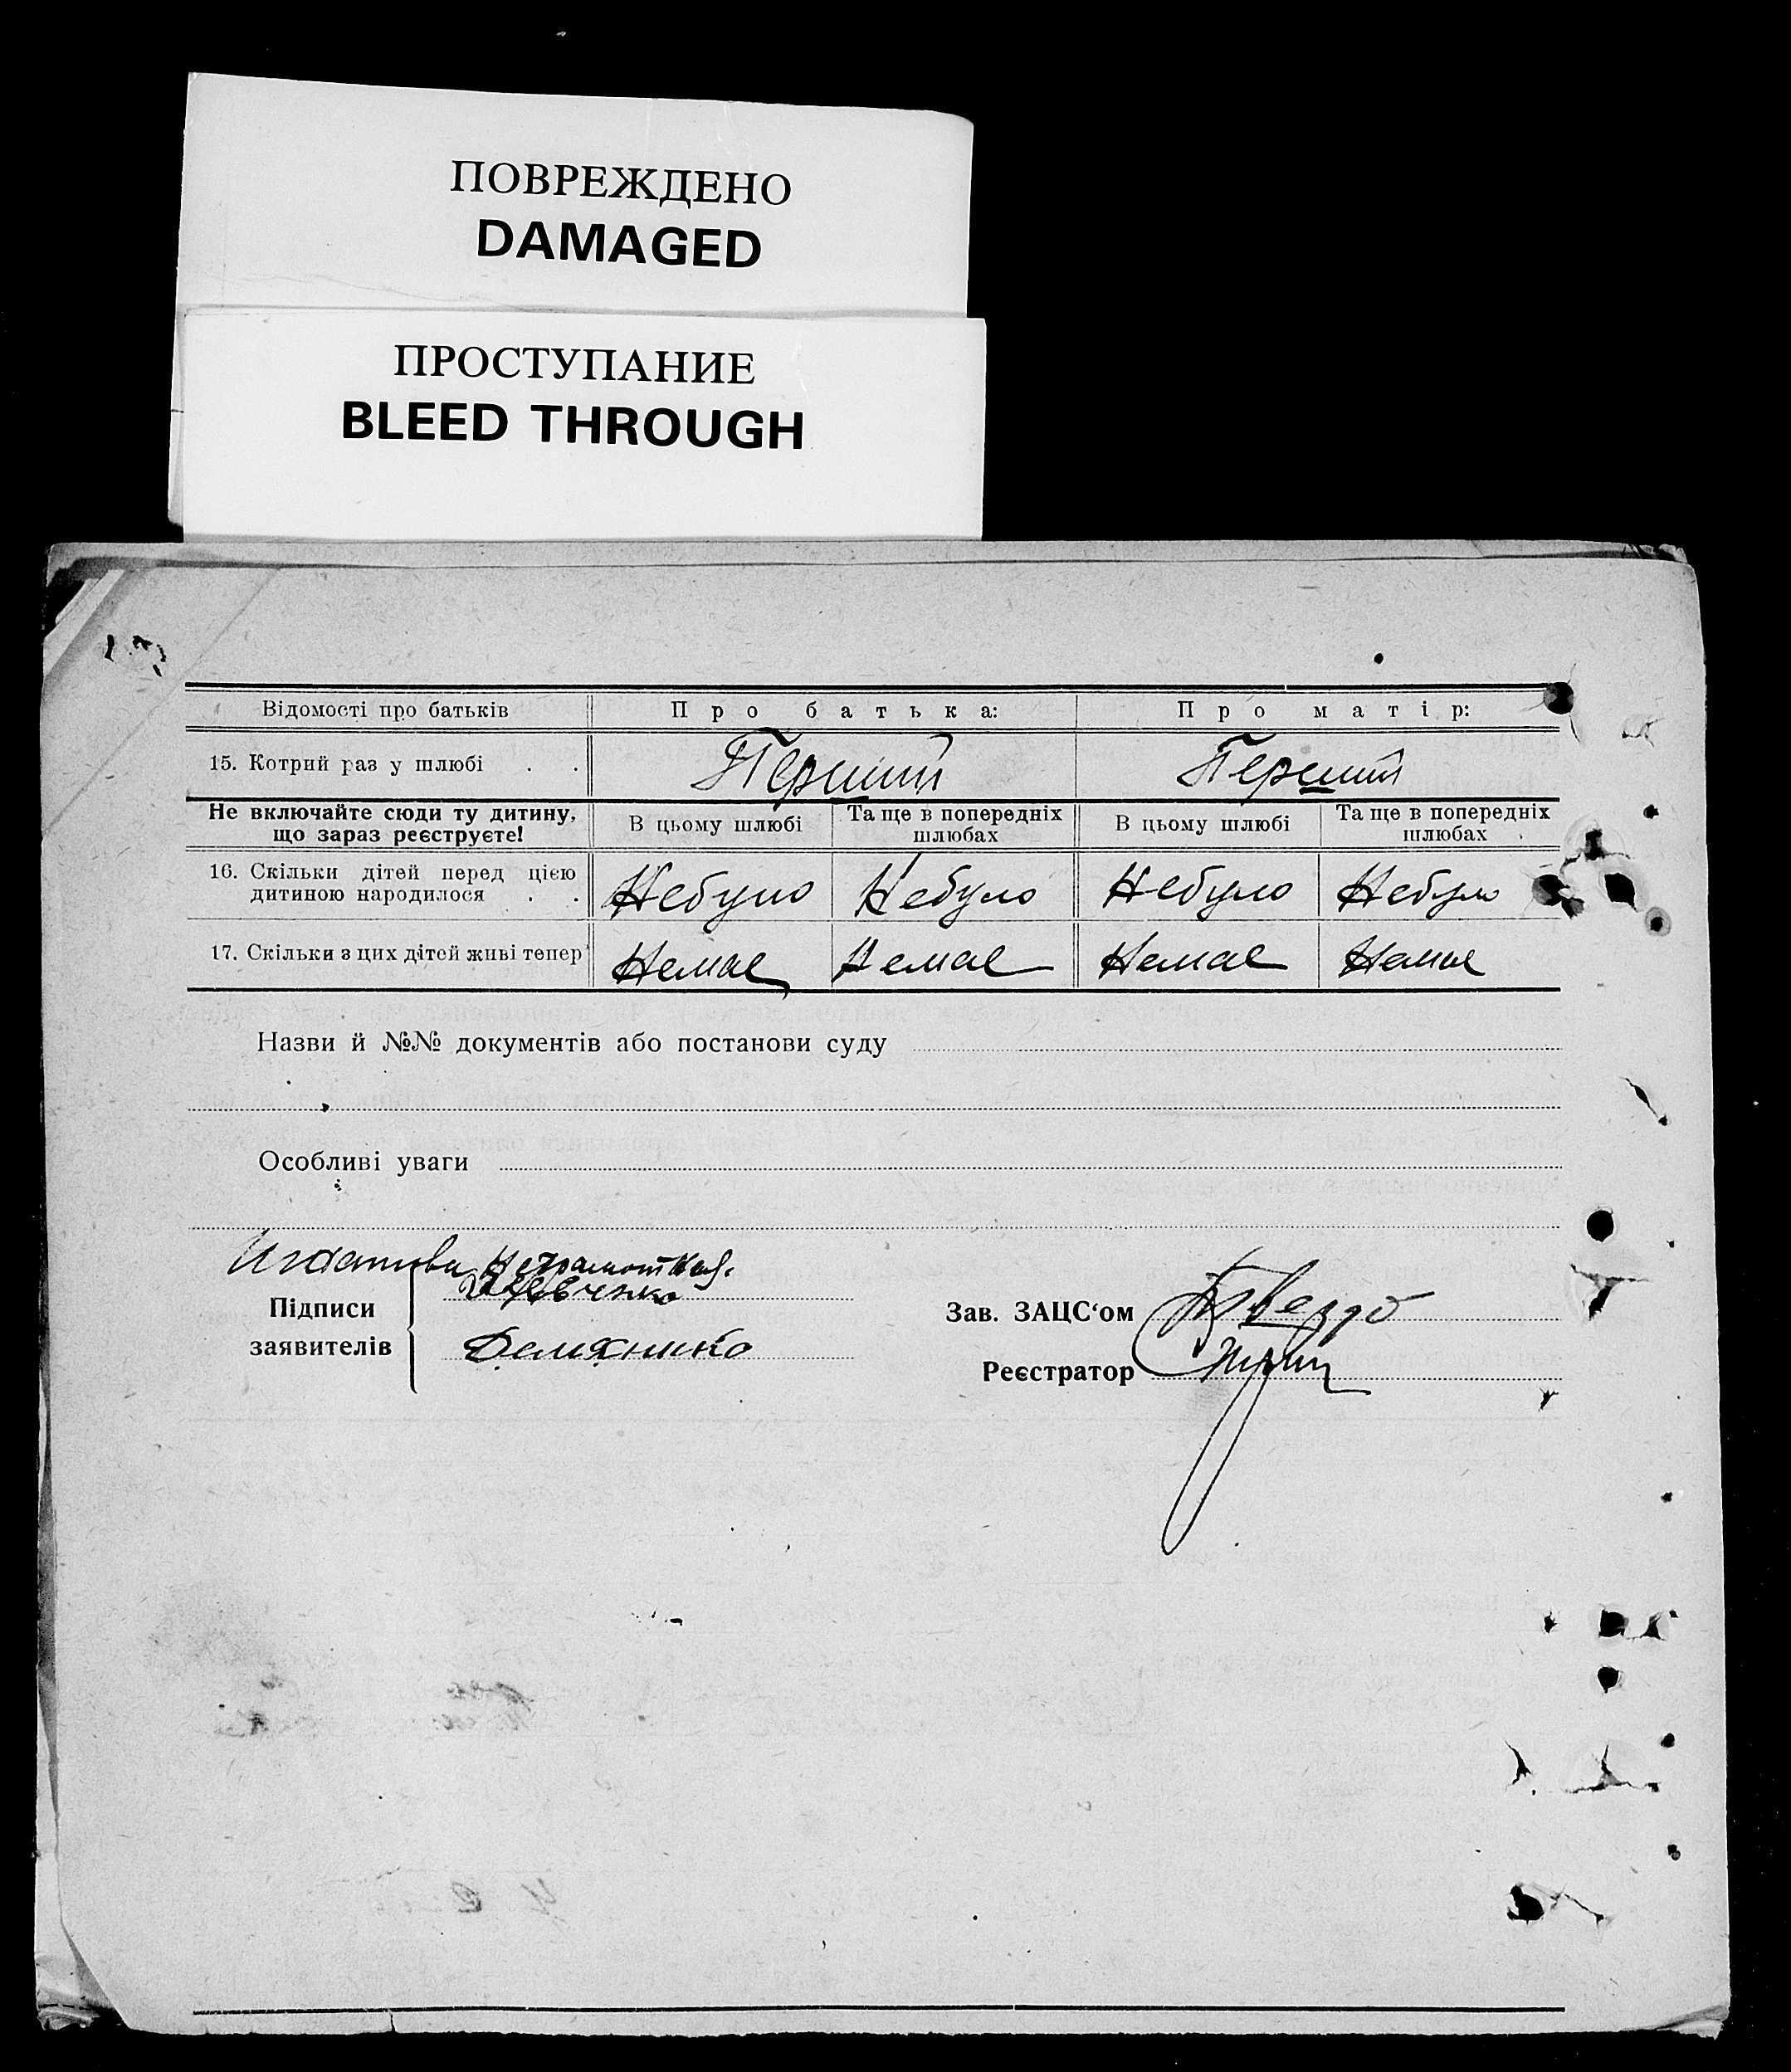 ПОВРЕЖДЕНО
DAMAGED
ПРОСТУПАНИЕ
BLEED THROUGH
Відомості про батьків Про батька: Про матір:
15. Котрий раз у шлюбі . . Перший Перший
Не включайте сюди ту дитину, що зараз реєструєте! В цьому шлюбі Та ще в попередніх шлюбах В цьому шлюбі Та ще в попередніх шлюбах
16. Скільки дітей перед цією
дитиною народилося . . Небуло Небуло Небуло Небуло
17. Скільки з цих дітей живі тепер Немає Немає Немає Немає
Назви й №№ документів або постанови суду
Особливі уваги
Неграмотная.
Шевченко
Підписи
заявителів
Демяненко
Зав. ЗАЦС‘ом
Реєстратор